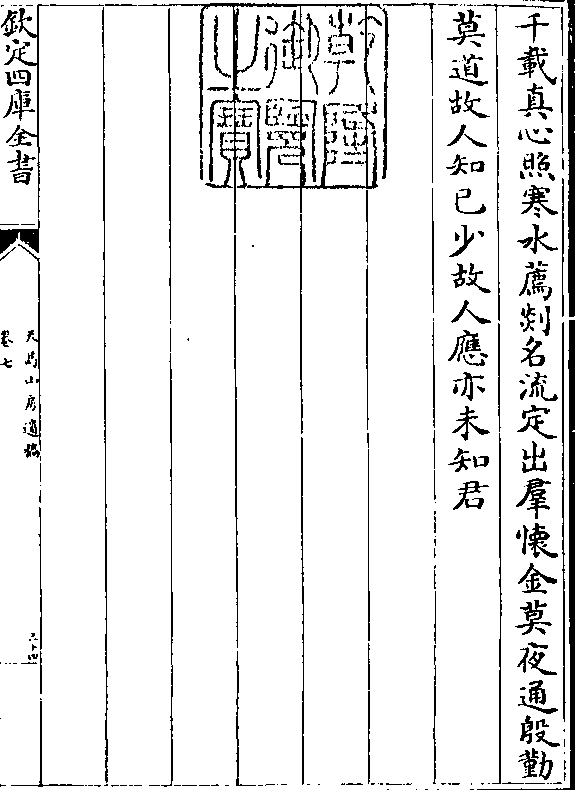 千載真心照寒水薦剡名流定出羣懷金莫夜通殷勤
莫道故人知已少故人應亦未知君
乾隆
御覽
之寶
欽定四庫全書
天馬山房遺稿
卷七
三十四